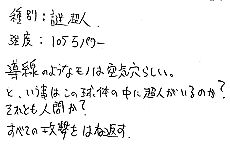 種別：謎超人
強度：105万パワー
導線のようなモノは空点穴らしい。
と、いう事はこの球体の中に超人がいるのか？
それとも人間か？
すべての攻撃をはね返す。